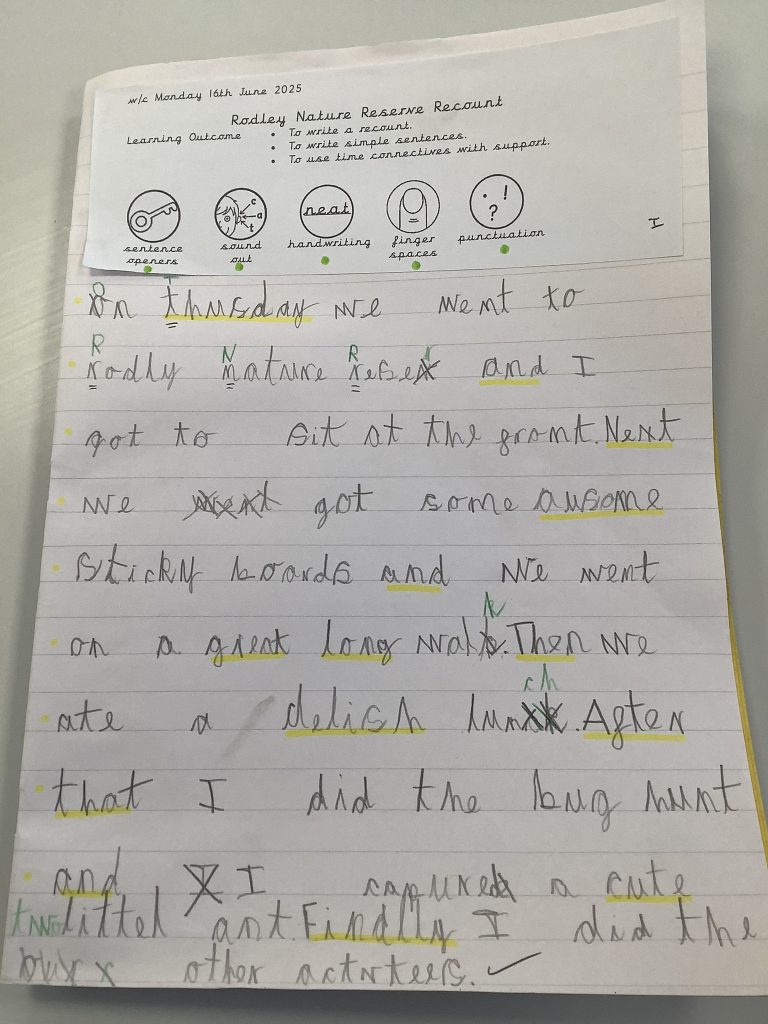 w/c Monday 16th June 2025
Rodley Nature Reserve Recount
Learning Outcome • To write a recount.
• To write simple sentences.
• To use time connectives with support.
c
a
t
neat
. ! ?
sentence openers
sound out
handwriting
finger spaces
punctuation
I
O T
on thusday we went to
R N R r
rodly nature rese and I
got to sit at the front. Next
we went got some ausome
sticky boards and we went
k
on a great long walk. Then we
ch
ate a delish lun. After
that I did the bug hunt
and I I capured a cute
two littel ant. Finally I did the
other activteers.